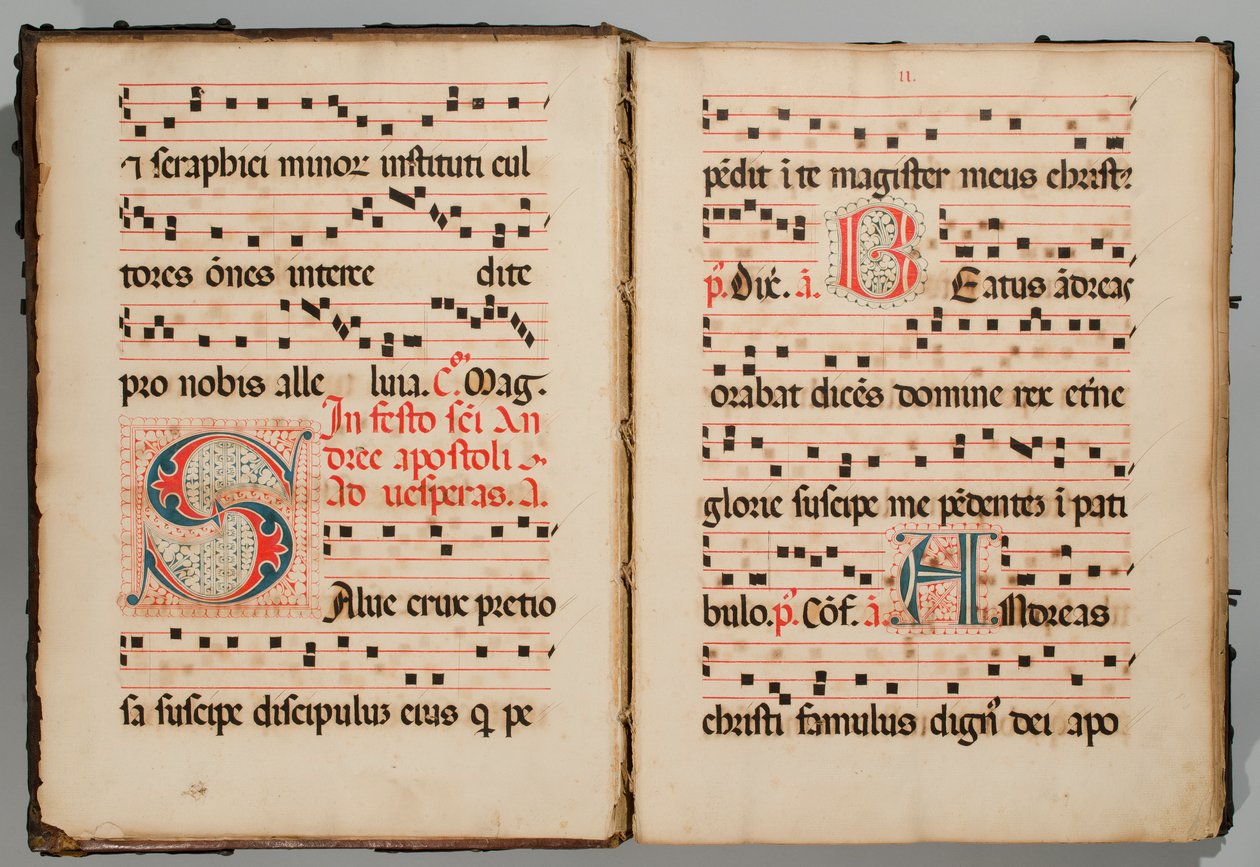 ⁊ seraphici minoꝝ instituti cul
tores ōnes interce dite
pro nobis alle luia. C. Mag.
In festo scī An
dree apostoli
Ad uesperas. A.
SAlue crux pretio
sa suscipe discipuluꝫ eius q̄ pe
II.
pēdit ī te magister meus christꝰ
p̄. Dix̄. ā. BEatus ādreas
orabat dicēs domine rex et̄ne
glorie suscipe me pēdenteꝫ ī pati
bulo. p̄. Cōf. ā. ANdreas
christi famulus dignꝰ dei apo